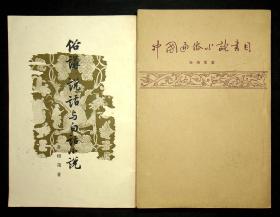 俗讲、说话与白话小说
孙楷第著
中国通俗小说书目
孙楷第著